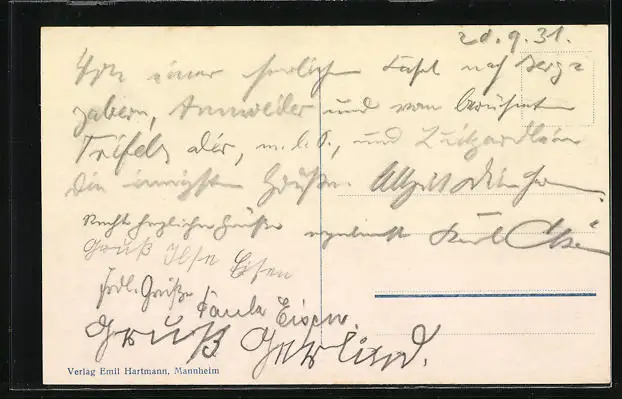 20.9.31.
Von einer herrlichen Fahrt nach Berg=
zabern, Annweiler und vom berühmten
Trifels Dir, m. l. , und
die innigsten Grüße.
Recht herzliche Grüße
Gruß Ilse Eisen
Frdl. Grüße Paula Eisen.
Gruß Gerlind.
Verlag Emil Hartmann, Mannheim